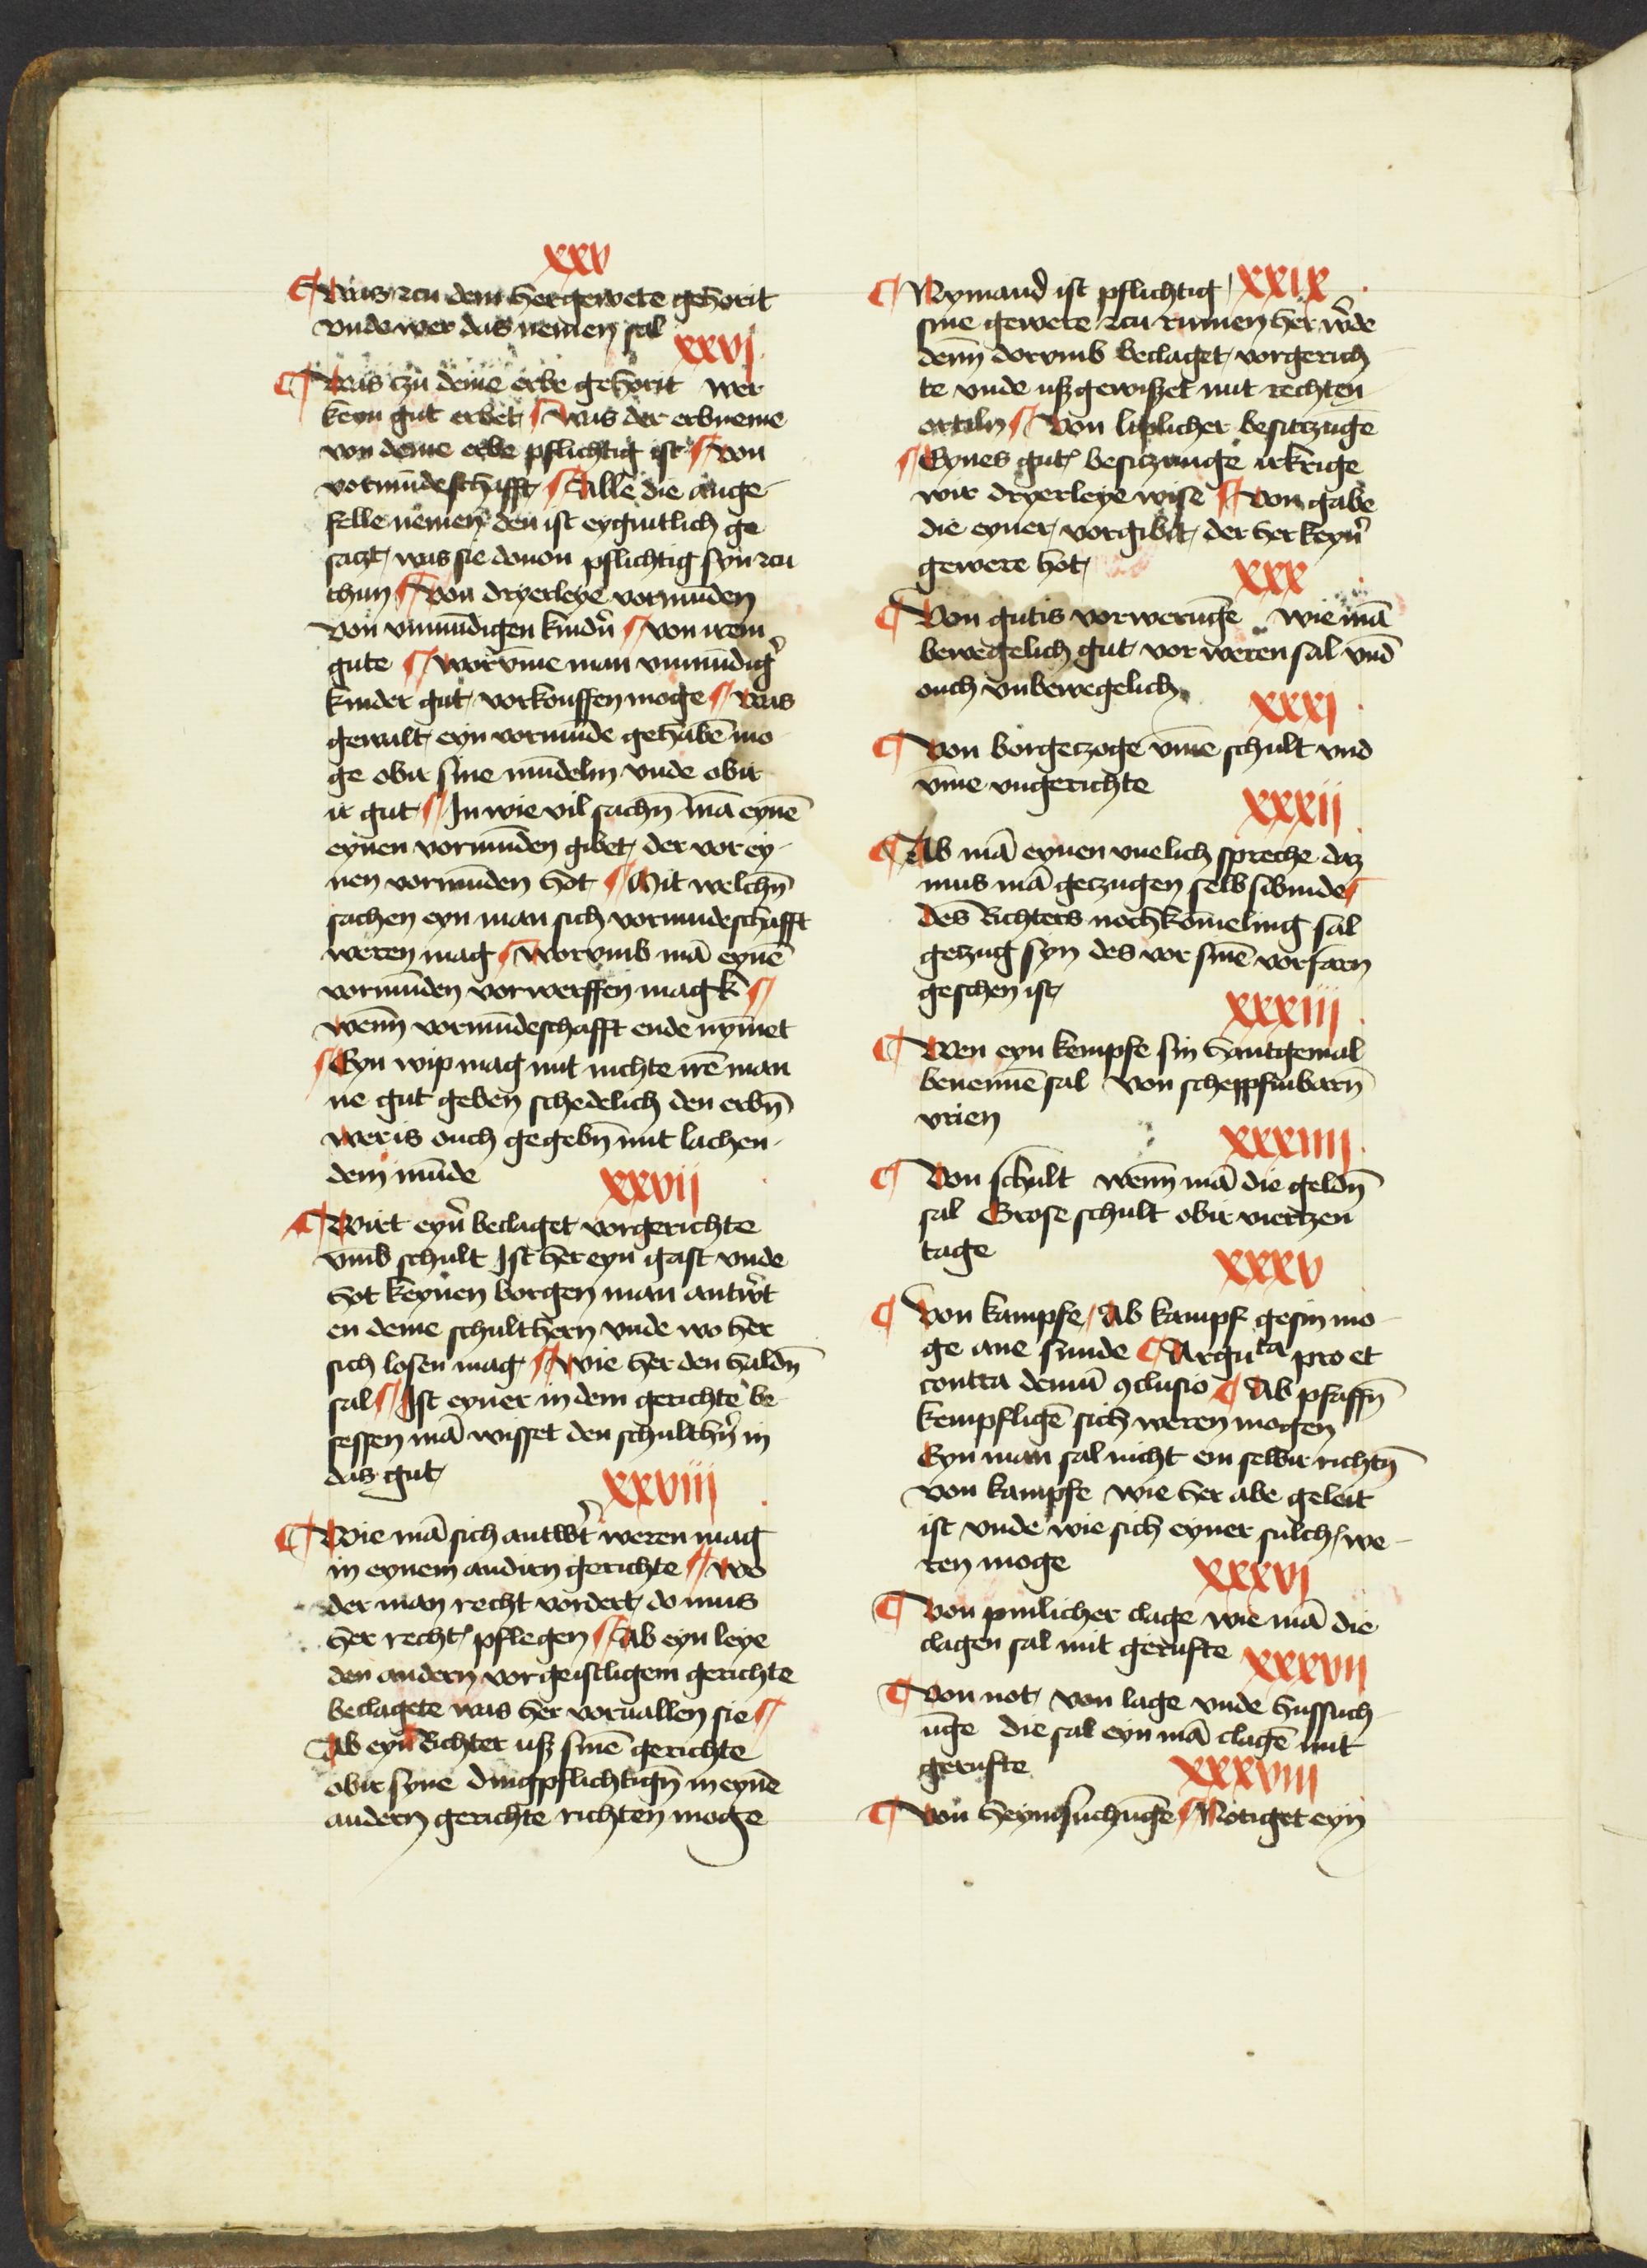 xxv
¶ Was zcu dem hergewete gehorit
vnde wer das nemen sal
xxvj
¶ Was czu deme erbe gehorit wer
keyn gut erbet ¶ was der erbneme
von deme erbe pflichtig ist ¶ von
vormūdeschafft ¶ Alle die ange-
felle nemen den ist eygintlich ge
sazt was sie douon pflichtig syn zcu
thun ¶ von dryerleye vormūden
von vnmūdigen kindn̄ ¶ von irem
gute ¶ worv̄me man vnmūdig̉
kinder gut vorkouffen moge ¶ was
gewalt eyn vormūde gehabē mo
ge obir sine mūdelin vnde obir
ir gut ¶ In wie vil sachn̄ mā eynē
eynen vormūden gibet der vor ey-
nen vormūden hot ¶ Mit welchn̄
sachen eyn man sich vormūdeschafft
weren mag ¶ worvmb mā eynē
vormūden vorwerffen magk ¶
wenn̄ vormūdeschafft ende nymmet
¶ Eyn wip mag mit nichte irē man
ne gut geben schedelich den erbn̄
weris ouch gegebn̄ mit lachen-
dem mūde
xxvij
¶ Wirt eyn̉ beclaget vorgerichte
vmb schult Ist her eyn gast vnde
hot keynen borgen man antw̉t
en deme schulthern vnde wo her
sich losen mag ¶ wie her den haldn̄
sal ¶ Ist eyner in dem gerichte be-
sessen mā wisset den schulthn̉ in
das gut
xxviij
¶ Wie mā sich antw̉t weren mag
in eynem andirn gerichte ¶ wo
der man recht vordert do mus
her recht pflegen ¶ Ab eyn leye
den andern vor geistligem gerichte
beclagete was her voruallen sie ¶
Ab eyn Richter usz sinē gerichte
obir syne dingpflichtign̄ in eynē
andern gerichte richten moge
¶ Nymand ist pflichtig xxix
sine gewere zcu rumen her w̉de
denn̄ dorvmb beclaget vorgerich
te vnde uszgewiszet mit rechten
ortiln ¶ Von liplicher besitczūgē
¶ Eynes gut besitzunge irkrige
wir dryerleye wise ¶ Von gabe
die eyner vorgibit der her keyn̉
gewere hot
xxx
¶ Von gutis vorwerūge wie mā
bewegelich gut vor weren sal vnd
ouch vnbewegelich
xxxj
¶ Von borgeczoge v̄me schult vnd
v̄me vngerichte
xxxij
¶ Ab mā eynen vnelich spreche daz
mus mā geczugen selb sibinde ¶
Des Richters nochkōmeling sal
geczug syn des vor sinē vorfarn
geschen ist
xxxiij
¶ Wen eyn kempfe sin hantgemal
benennē sal von scheppfinbarn̄
vrien
xxxiiij
¶ Von schult wenn̄ mā die geldn̄
sal Grose schult obir viertzen
tage
xxxv
¶ Von kampfe Ab kampf gesin mo
ge ane sunde ¶ Arguta pro et
contra demū ꝯclusio ¶ Ab pfaffn̄
kempfligē sich weren mogen
Eyn man sal nicht em selbir richtn̄
von kampfe wie her abe geleit
ist vnde wie sich eyner sulch we-
ren moge
xxxvj
¶ Von pinlicher clage wie mā die
clagen sal mit gerufte
xxxvij
¶ Von not von lage vnde hussuch
ūge die sal eyn mā clagē mit
gerufte
xxxviij
¶ Von heymsuchūge ¶ Notiget eyn